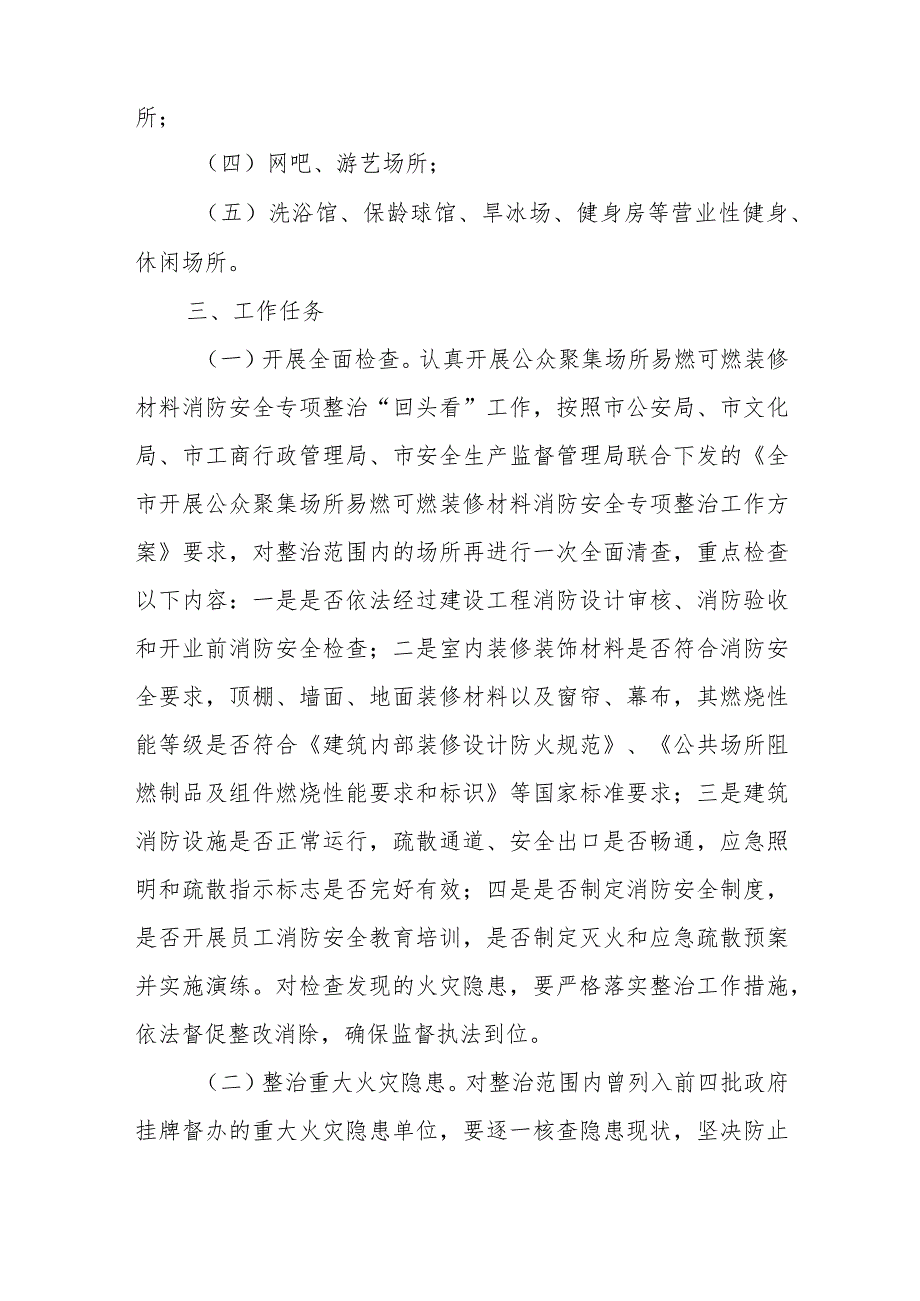 所；
（四）网吧、游艺场所；
（五）洗浴馆、保龄球馆、旱冰场、健身房等营业性健身、
休闲场所。
三、工作任务
（一）开展全面检查。认真开展公众聚集场所易燃可燃装修
材料消防安全专项整治“回头看”工作，按照市公安局、市文化
局、市工商行政管理局、市安全生产监督管理局联合下发的《全
市开展公众聚集场所易燃可燃装修材料消防安全专项整治工作方
案》要求，对整治范围内的场所再进行一次全面清查，重点检查
以下内容：一是是否依法经过建设工程消防设计审核、消防验收
和开业前消防安全检查；二是室内装修装饰材料是否符合消防安
全要求，顶棚、墙面、地面装修材料以及窗帘、幕布，其燃烧性
能等级是否符合《建筑内部装修设计防火规范》、《公共场所阻
燃制品及组件燃烧性能要求和标识》等国家标准要求；三是建筑
消防设施是否正常运行，疏散通道、安全出口是否畅通，应急照
明和疏散指示标志是否完好有效；四是是否制定消防安全制度，
是否开展员工消防安全教育培训，是否制定灭火和应急疏散预案
并实施演练。对检查发现的火灾隐患，要严格落实整治工作措施，
依法督促整改消除，确保监督执法到位。
（二）整治重大火灾隐患。对整治范围内曾列入前四批政府
挂牌督办的重大火灾隐患单位，要逐一核查隐患现状，坚决防止